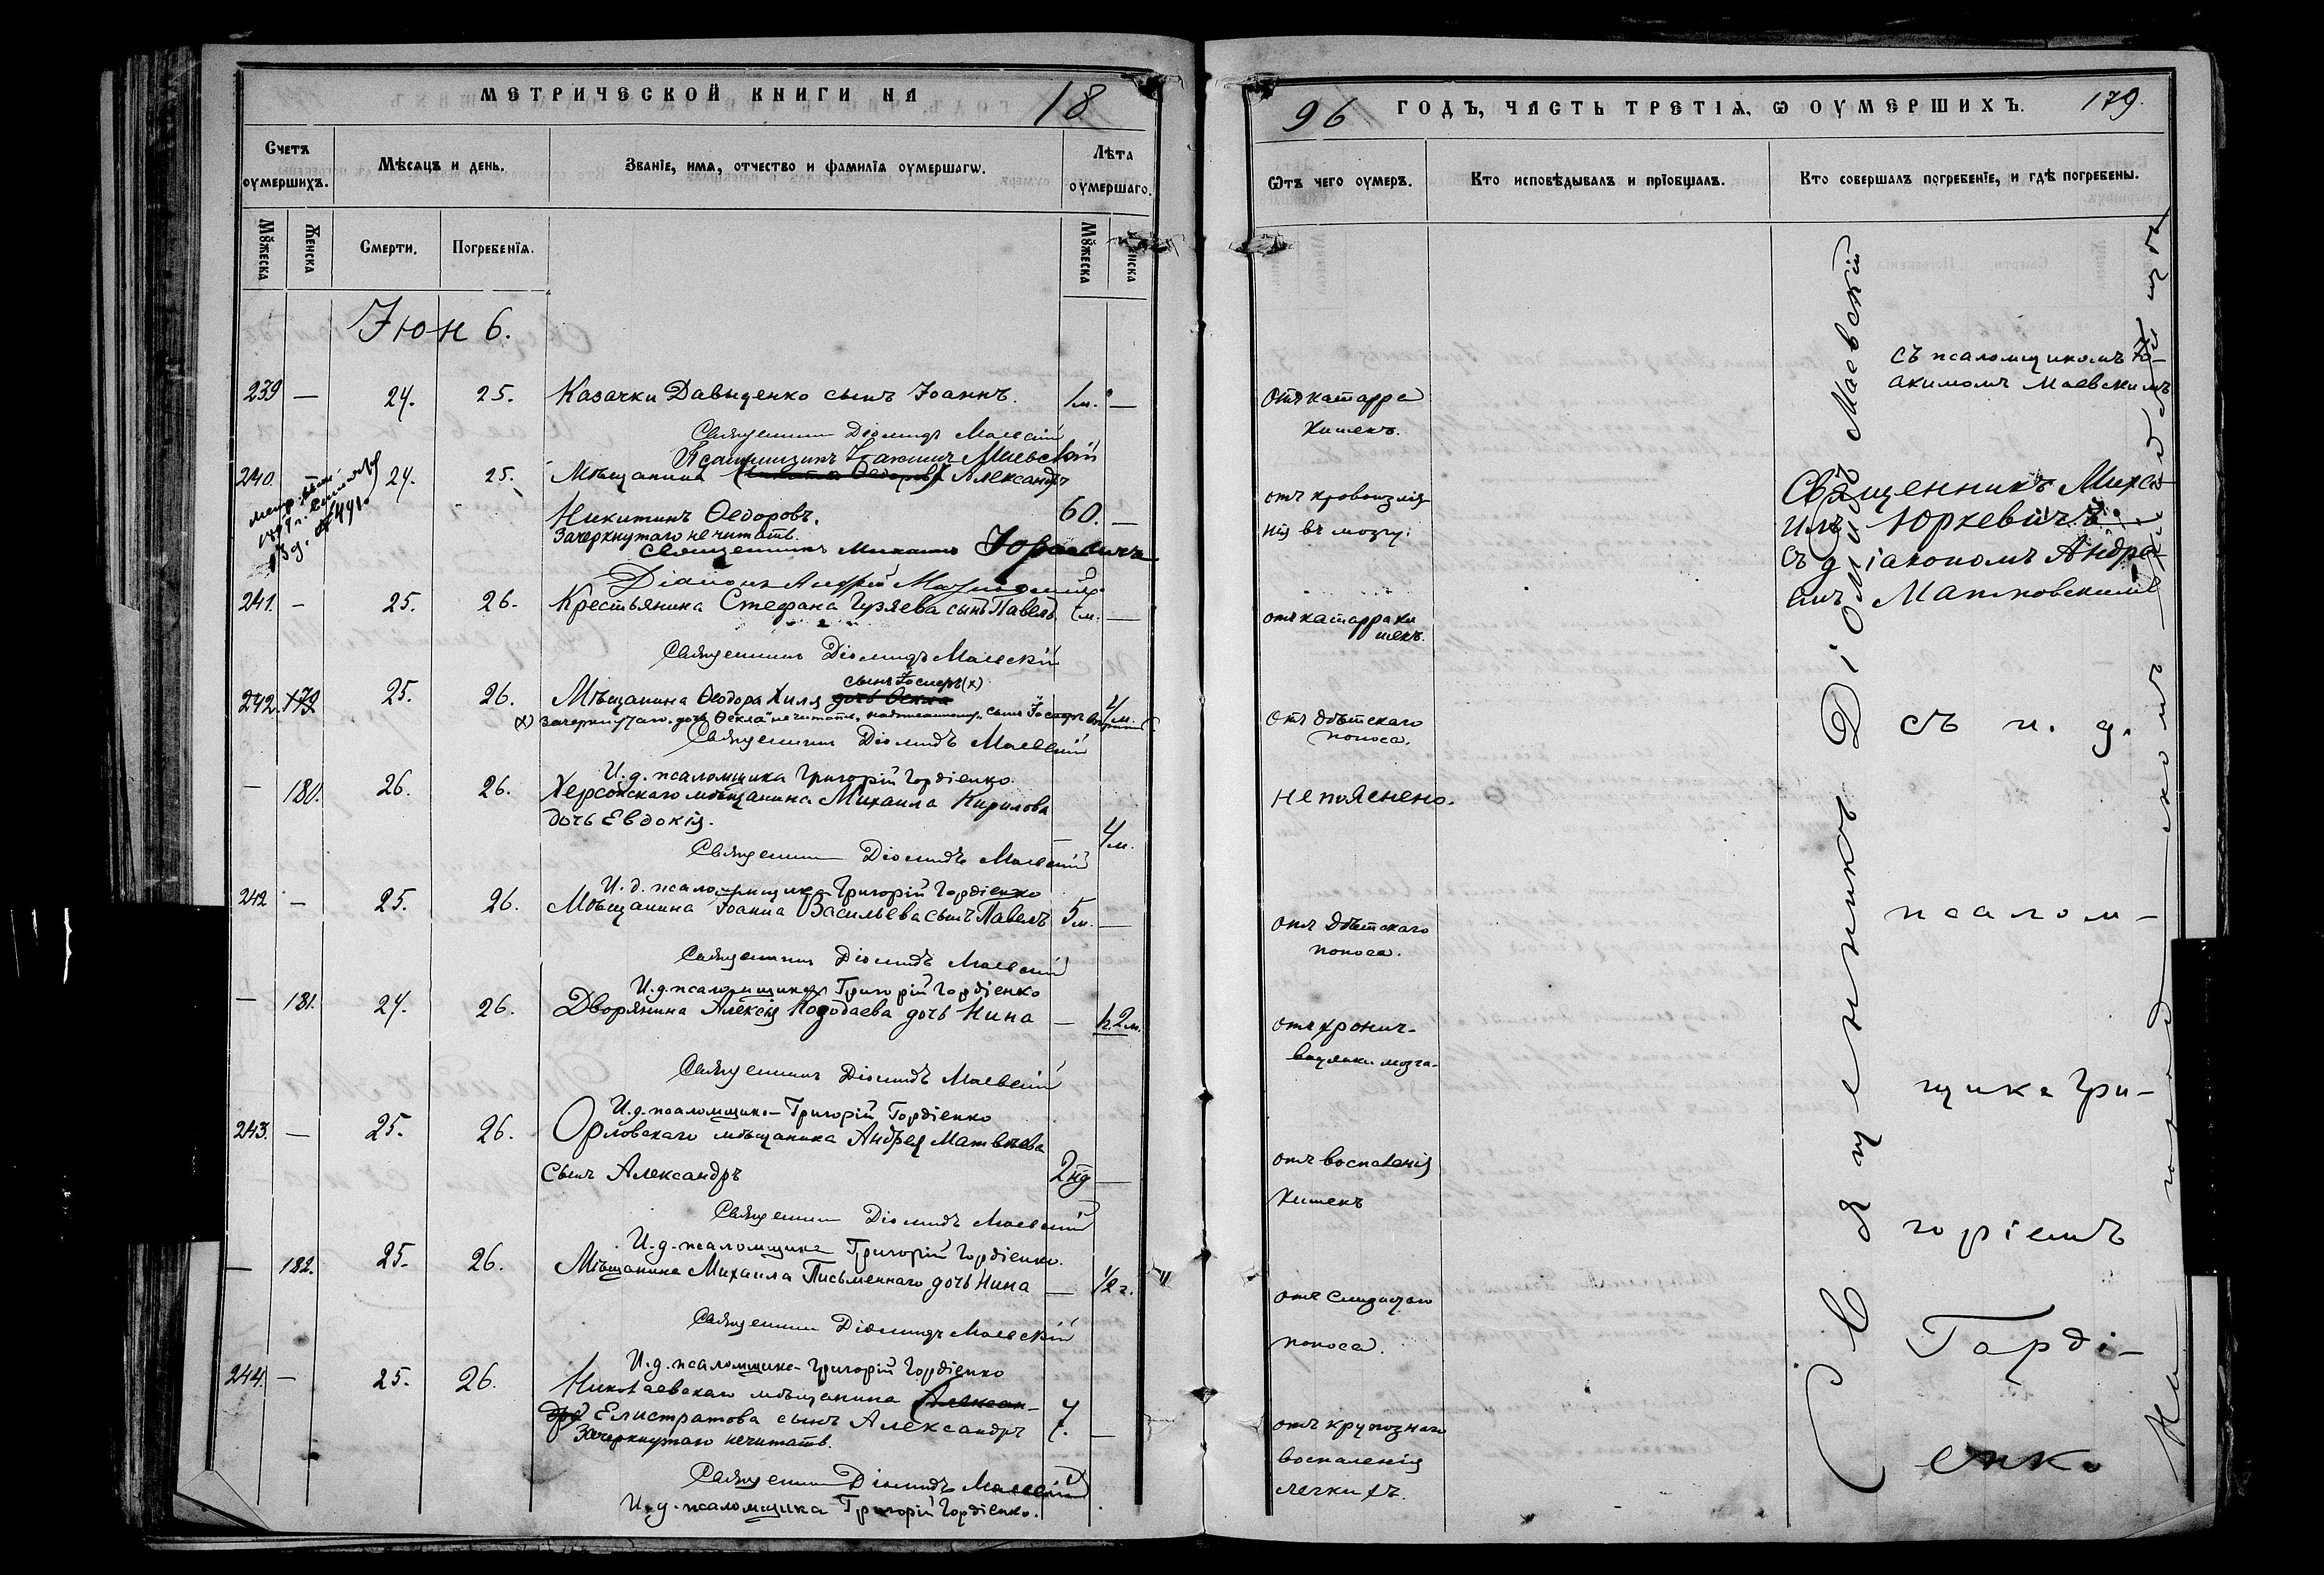 МЕТРИЧЕСКОЙ КНИГИ НА 18
Счетъ оумершихъ.
Мѣсяцъ и день.
Званіе, имя, отчество и фамилія оумершагѡ.
Лѣта оумершаго.
Мꙋжеска
Женска
Смерти.
Погребенія.
Мꙋжеска
Женска
Іюнь.
239 — 24. 25. Казачки Давыденко сынъ Іоаннъ. 1 м. —
Священникъ Діомидъ Маевскій
Псаломщикъ Іоакимъ Маевскій
240 24. 25. Мѣщанина Александръ
Никитинъ Ѳедоровъ. 60. —
Зачеркнутаго не читать.
Священникъ Михаилъ Юркевичъ
Діаконъ Андрей Матковскій
241. — 25. 26. Крестьянина Стефана Гуляева сынъ Павелъ м. —
Священникъ Діомидъ Маевскій
сынъ Іосифъ (х)
242. 179 25. 26. Мѣщанина Ѳеодора Хиля дочь Ѳекла 4 м.
(х) Зачеркнутаго „дочь Ѳекла" не читать, надписанному „сынъ Іосифъ" вѣрить.
Священникъ Діомидъ Маевскій
И. д. псаломщика Григорій Гордіенко.
— 180. 26. 26. Херсонскаго мѣщанина Михаила Кирилова
дочь Евдокія. — 4 м.
Священникъ Діомидъ Маевскій
И. д. псаломщика Григорій Гордіенко
242 — 25. 26. Мѣщанина Іоанна Васильева сынъ Павелъ 5 м. —
Священникъ Діомидъ Маевскій
И. д. псаломщика Григорій Гордіенко
— 181. 24. 26. Дворянина Алексія дочь Нина — 2 м.
Священникъ Діомидъ Маевскій
И. д. псаломщика Григорій Гордіенко
243. — 25. 26. Орловскаго мѣщанина Андрея Матвѣева
сынъ Александръ 2 нд —
Священникъ Діомидъ Маевскій
И. д. псаломщика Григорій Гордіенко.
— 182. 25. 26. Мѣщанина Михаила Письменнаго дочь Нина — 1/2 г.
Священникъ Діомидъ Маевскій
И. д. псаломщика Григорій Гордіенко
244. — 25. 26. Николаевскаго мѣщанина Алексан-
дра Елистратова сынъ Александръ 7. —
Зачеркнутаго не читать.
Священникъ Діомидъ Маевскій
И. д. псаломщика Григорій Гордіенко.
96 ГОДЪ, ЧАСТЬ ТРЕТІЯ, Ѡ ОУМЕРШИХЪ. 179.
Ѿтъ чего оумеръ.
Кто исповѣдывалъ и пріобщалъ.
Кто совершалъ погребеніе, и гдѣ погребены.
Отъ катарра
кишекъ.
отъ кровоизлія
нія въ мозгу.
отъ катарра ки
шекъ.
отъ дѣтскаго
поноса.
не пояснено.
отъ дѣтскаго
поноса.
отъ хронич-
водянки мозга.
отъ воспаленія
кишекъ
отъ слизистаго
поноса.
отъ крупознаго
воспаленія
легкихъ.
Священникъ Діомидъ Маевскій
съ псаломщикомъ Іо-
акимомъ Маевскимъ
Священникъ Миха
илъ Юркевичъ
съ діакономъ Андре
емъ Матковскимъ
съ и. д.
псалом-
щика Гри-
горіемъ
Горді-
енко